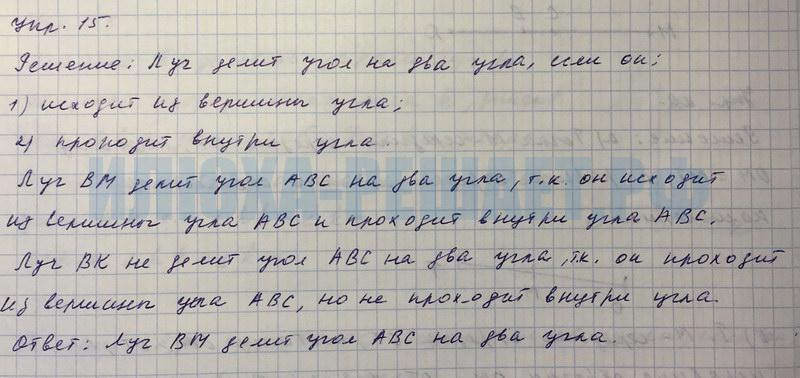 Упр. 15.
Решение: Луч делит угол на два угла, если он:
1) исходит из вершины угла;
2) проходит внутри угла.
Луч BM делит угол ABC на два угла, т.к. он исходит
из вершины угла ABC и проходит внутри угла ABC.
Луч BK не делит угол ABC на два угла, т.к. он проходит
из вершины угла ABC, но не проходит внутри угла.
Ответ: Луч BM делит угол ABC на два угла.